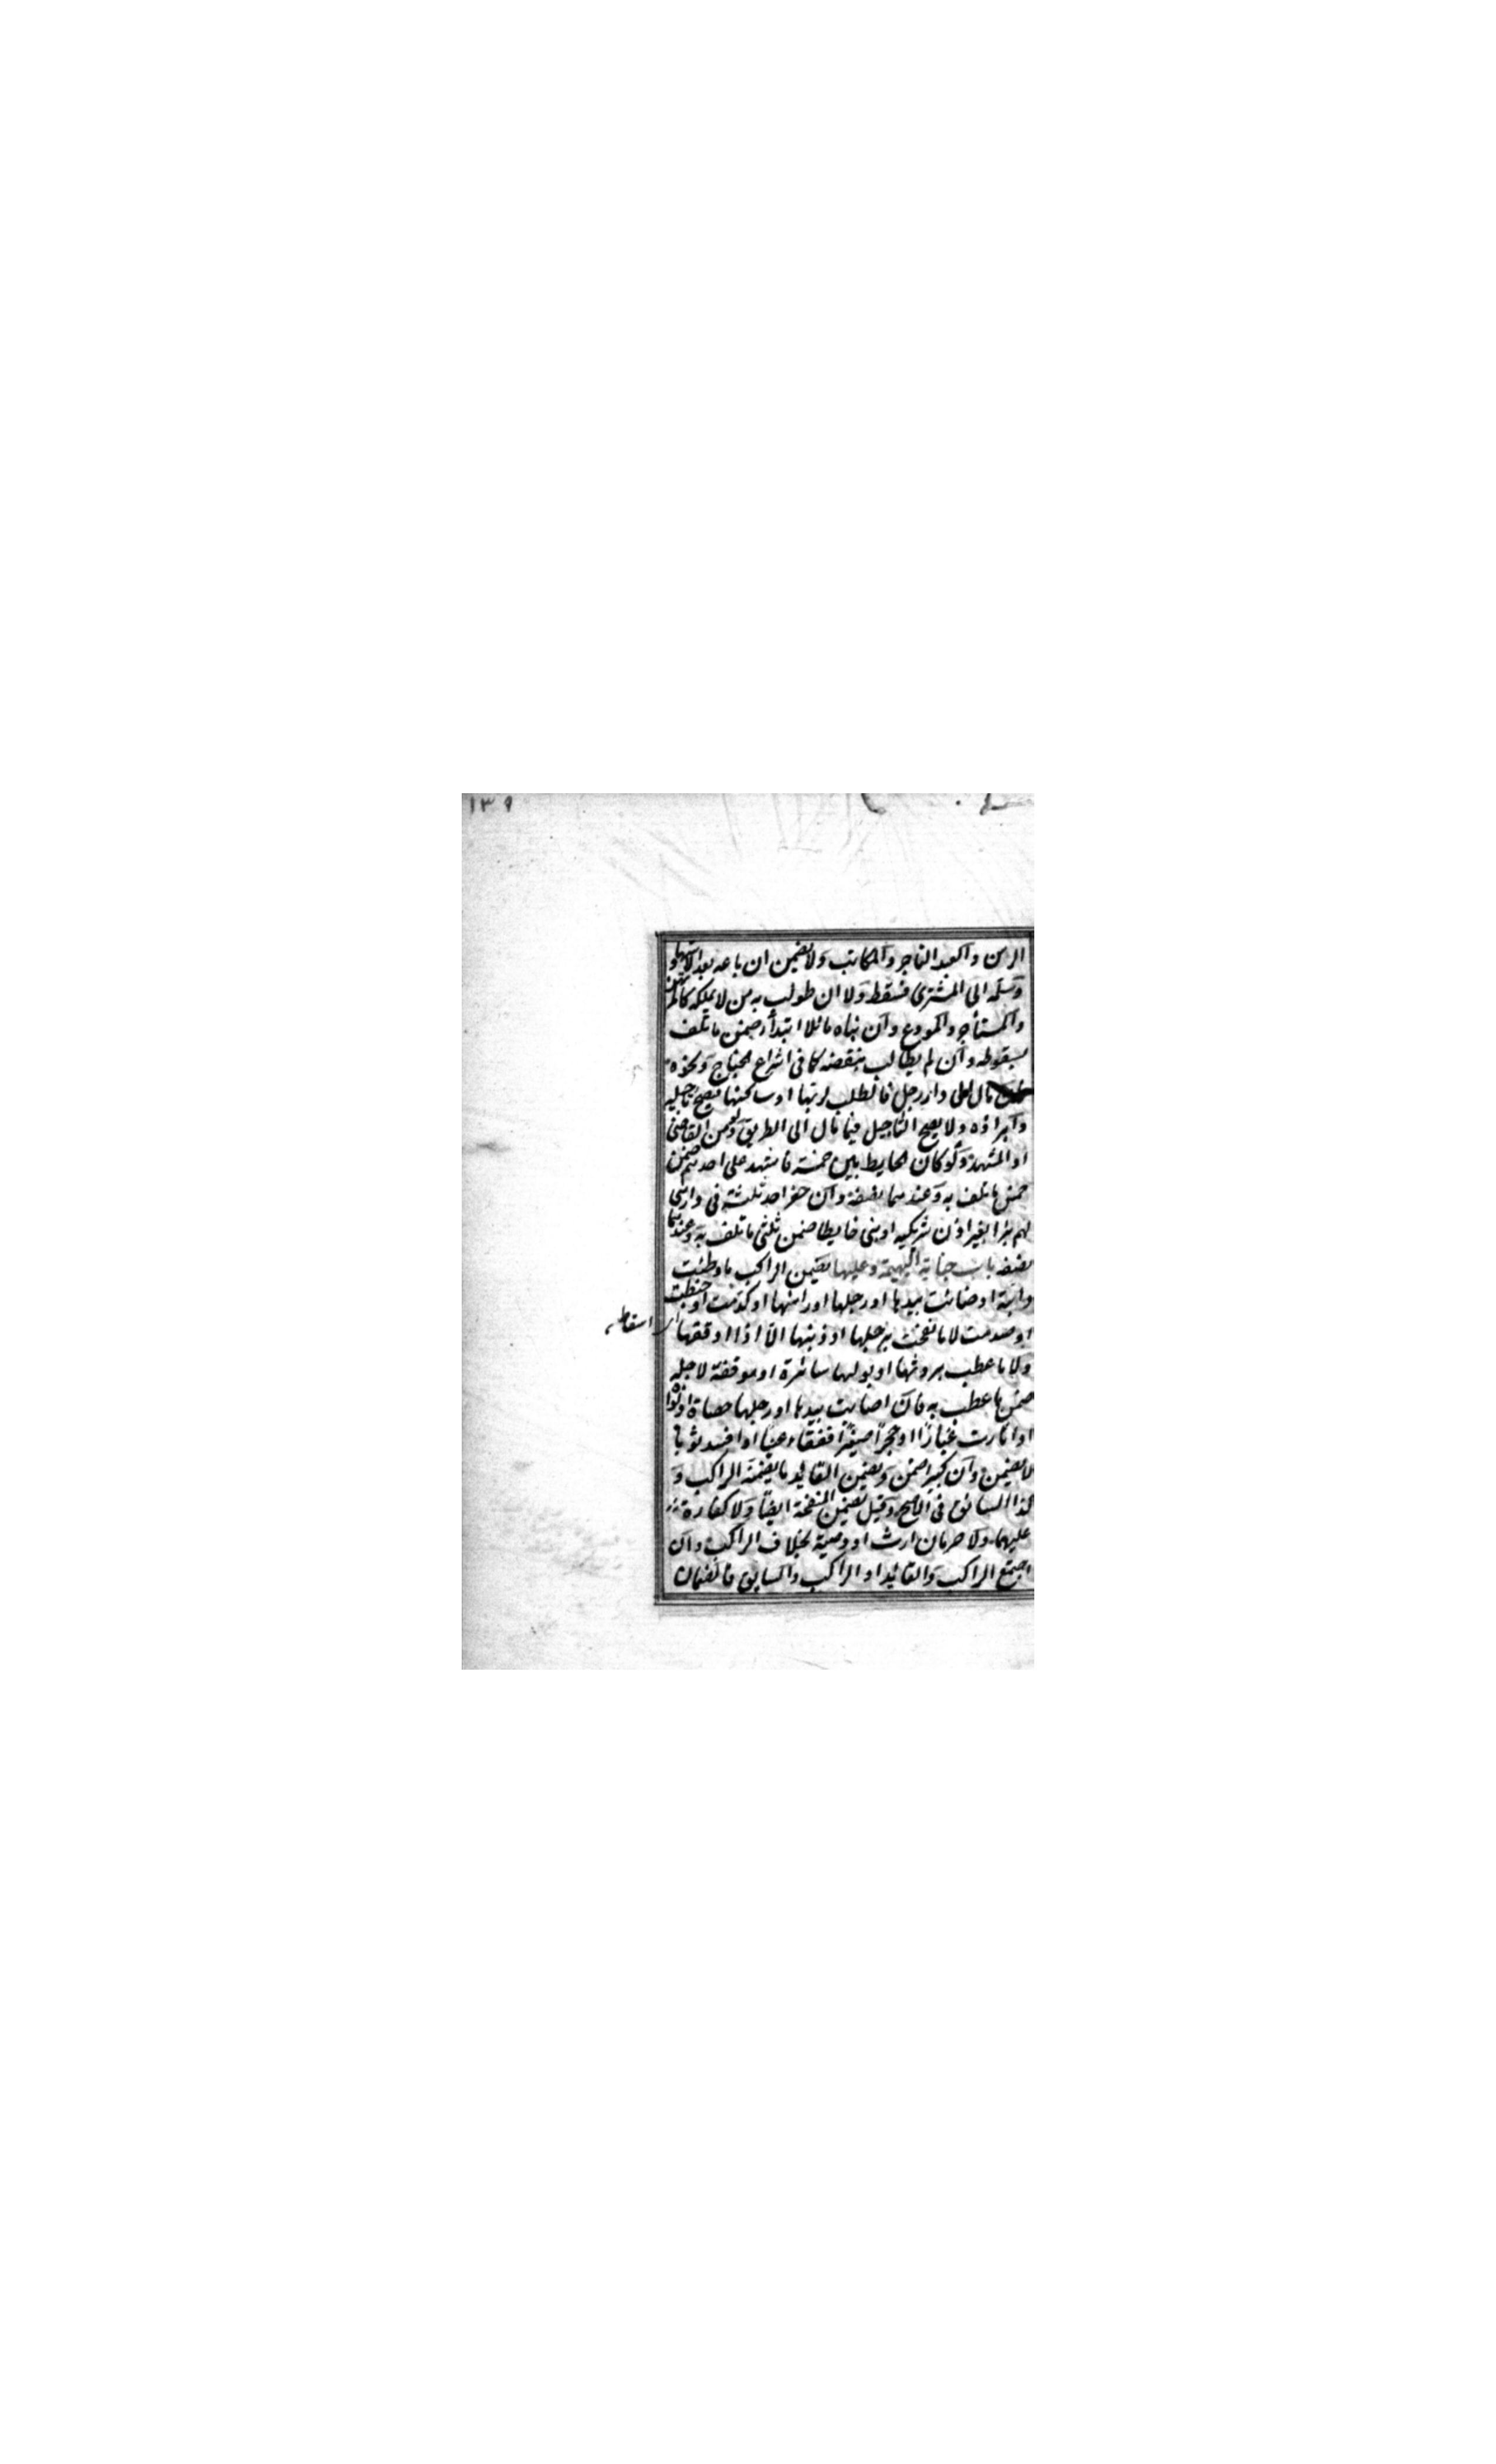 ١٣٩
الرهن والعبد التاجر والمكاتب ولا يضمن ان باعه بعد الاشهاد
وسلمه الى المشترى فسقط ولا ان طولب به من لا يملكه كالمرتهن
والمستأجر والمودع وان بناه مائلا ابتدأ ضمن ما تلف
بسقوطه وان لم يطالب بنقضه كما فى اشراع الجناح ونحوه
مال الى دار رجل فالطلب لربها او ساكنها فيصح تأجيله
وابراؤه ولا يصح التأجيل فيما مال الى الطريق ولو من القاضى
او المشهد ولو كان الحايط بين خمسة فاشهد على احدهم ضمن
خمس ما تلف به وعندهما نصفه وان حفر احد ثلثة فى دار هى
لهم بئرا بغير اذن شريكيه او بنى حايطا ضمن ثلثى ما تلف به وعندهما
نصفه باب جناية البهيمة وعليها يضمن الراكب ما وطئت
دابته او اصابت بيدها او رجلها او رأسها او كدمت او خبطت
او صدمت لا ما نفحت برجلها او ذنبها الا اذا اوقفها
اسقاط
ولا ما عطب بروثها او بولها سائرة او موقفة لاجله
ضمن ما عطب به فان اصابت بيدها او رجلها حصاة او نواة
او اثارت غبارا او حجرا صغيرا ففقاء عينا او افسد ثوبا
لا يضمن وان كبيرا ضمن ويضمن القائد ما يضمنه الراكب و
كذا السائق فى الاصح وقيل يضمن النفحة ايضا ولا كفارة
عليهما ولا حرمان ارث او وصية بخلاف الراكب وان
اجتمع الراكب والقائد او الراكب والسايق فالضمان